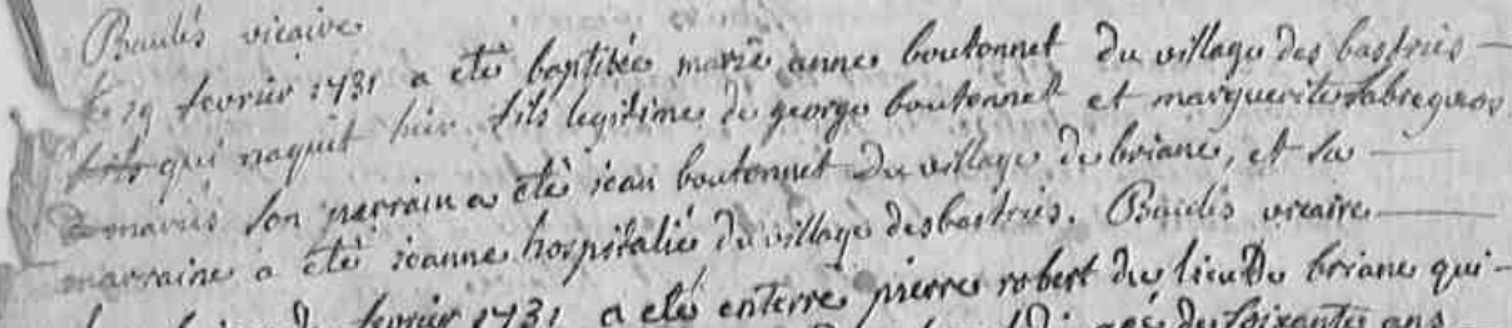 Baulés vicaire
le 19 fevrier 1731 a eté baptisée marie anne boutonnet du village des bastries
fils qui naquit hier fils legitime de george boutonnet et marguerite
mariés son parrain a eté jean boutonnet du village de briane, et sa
marraine a eté jeanne hospitalié du village des bastries. Baulés vicaire
fevrier 1731 a eté enterré pierre robert du lieu de briane qui
agé de soixante ans